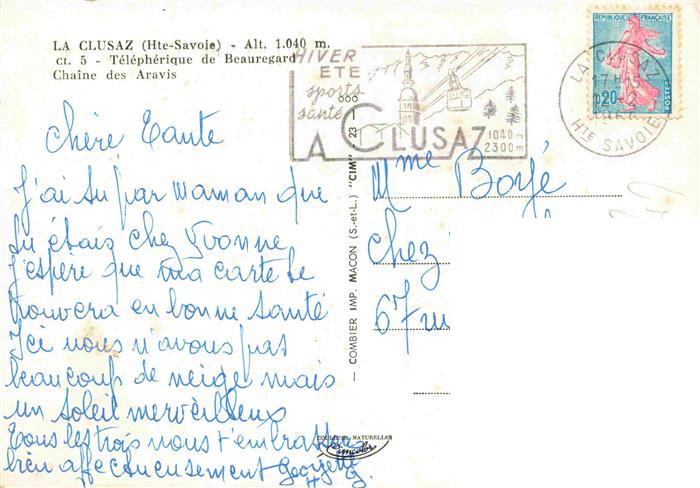 LA CLUSAZ (Hte-Savoie) - Alt. 1.040 m.
CI. 5 - Téléphérique de Beauregard
Chaîne des Aravis
HIVER
ETE
sports
santé
LA CLUSAZ
1040 m
2300 m
REPUBLIQUE FRANÇAISE
0,20
POSTES
LA CLUSAZ
17H15
12-2
HTE SAVOIE
Chère Tante
J'ai su par Maman que
tu étais chez Yvonne
J'espère que ma carte te
trouvera en bonne santé
Ici nous n'avons pas
beaucoup de neige mais
un soleil merveilleux
Tous les trois nous t'embrassons
bien affectueusement Georgette
Mme Borjé
chez
67
COMBIER IMP. MACON (S.-et-L.) "CIM"
COULEURS NATURELLES
Cimcolor